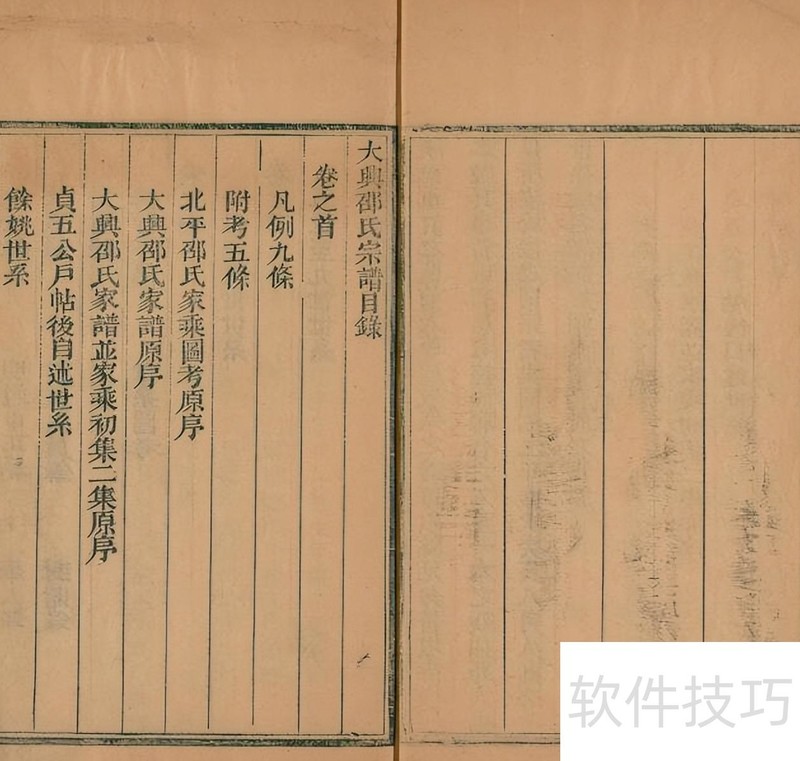 大興邵氏宗譜目錄
卷之首
凡例九條
附考五條
北平邵氏家乘圖考原序
大興邵氏家譜原序
大興邵氏家譜並家乘初集二集原序
貞五公戶帖後自述世系
餘姚世系
软件技巧